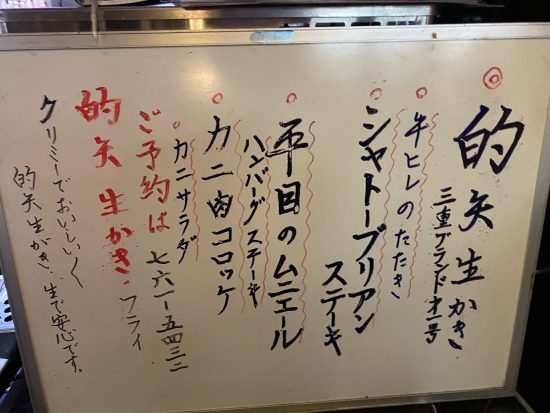 ◎的矢生かき
三重ブランド才一号
牛ヒレのたたき
シャトーブリアン
ステーキ
平目のムニエール
ハンバーグステーキ
カニ肉コロッケ
カニサラダ
ご予約は七六一-五四三二
的矢生かき・フライ
クリミーでおいしいく
的矢生がき、生で安心です。